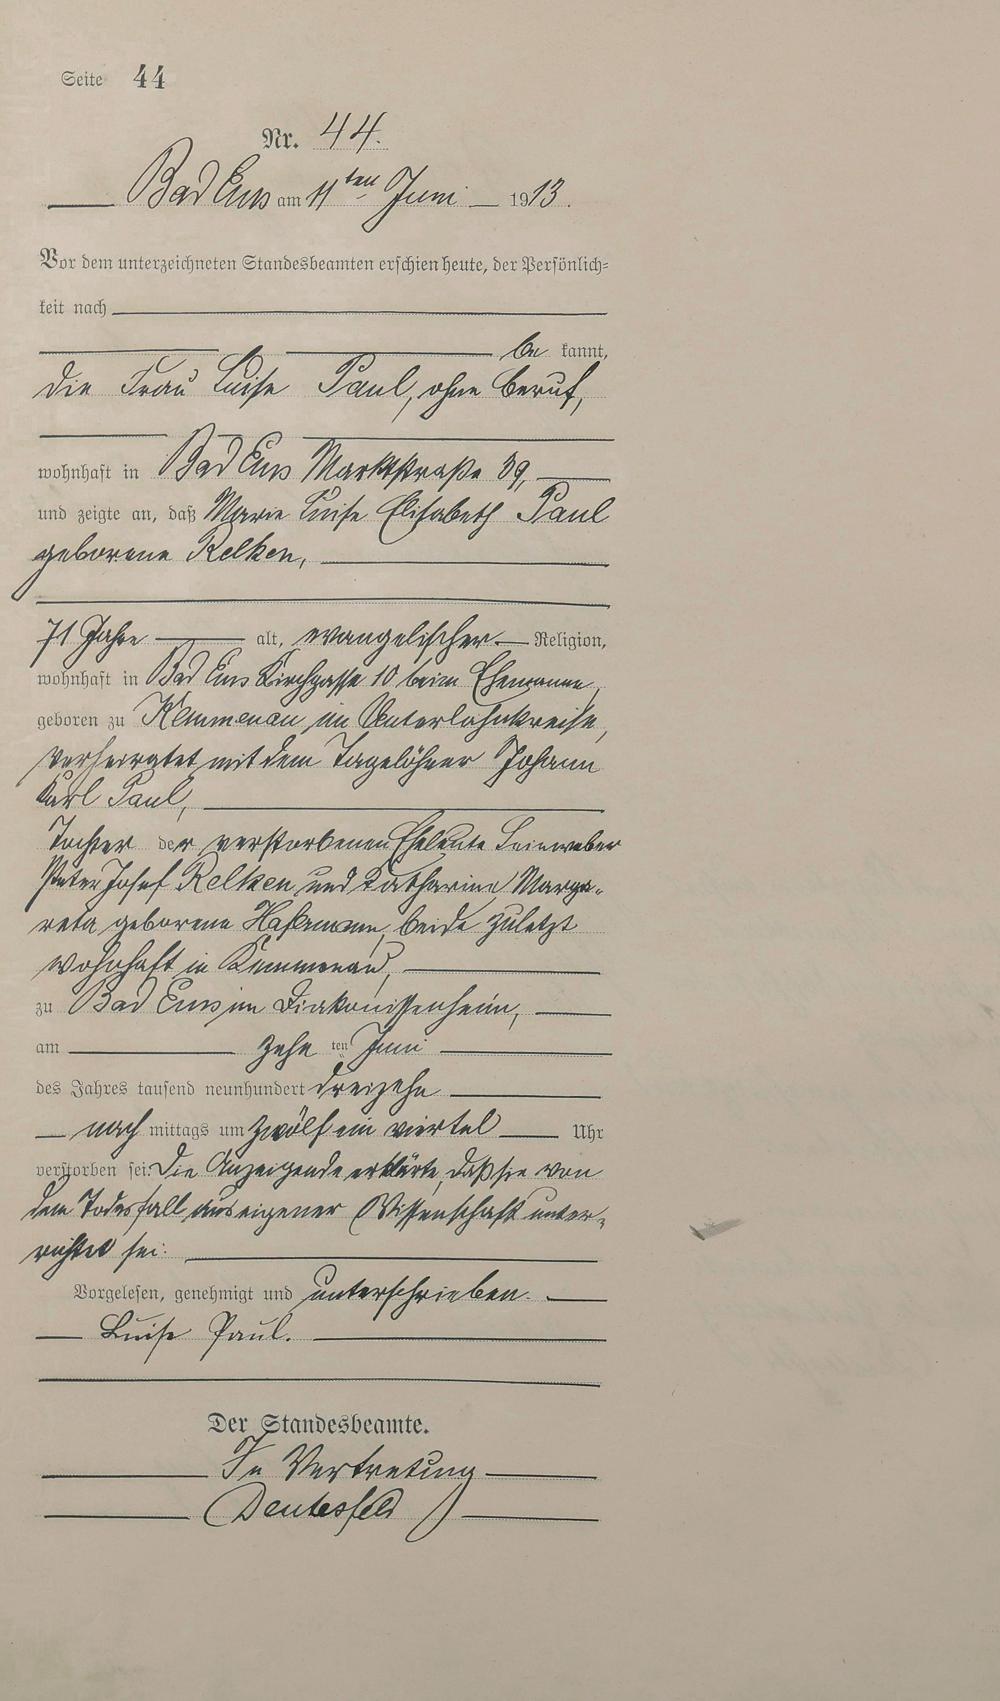 Seite 44
Nr. 44.
Bad Ems am 11ten Juni 1913.
Vor dem unterzeichneten Standesbeamten erschien heute, der Persönlich-
keit nach
be kannt,
die Frau Luise Paul, ohne Beruf,
wohnhaft in Bad Ems Marktstraße 39,
und zeigte an, daß Marie Luise Elisabeth Paul
geborene Relken,
71 Jahre alt, evangelischer Religion,
wohnhaft in Bad Ems Kirchgasse 10 beim Ehemanne,
geboren zu Kemmenau im Unterlahnkreise,
verheiratet mit dem Tagelöhner Johann
Karl Paul,
Tochter der verstorbenen Eheleute Leinweber
Peter Josef Relken und Katharina Marga-
reta geborene beide zuletzt
wohnhaft in Kemmenau,
zu Bad Ems im Diakonissenheim,
am zehn ten Juni
des Jahres tausend neunhundert dreizehn
nach mittags um zwölf ein viertel Uhr
verstorben sei. Die Anzeigende erklärte, daß sie von
dem Todesfall aus eigener Wissenschaft unter-
richtet sei.
Vorgelesen, genehmigt und unterschrieben.
Luise Paul.
Der Standesbeamte.
In Vertretung